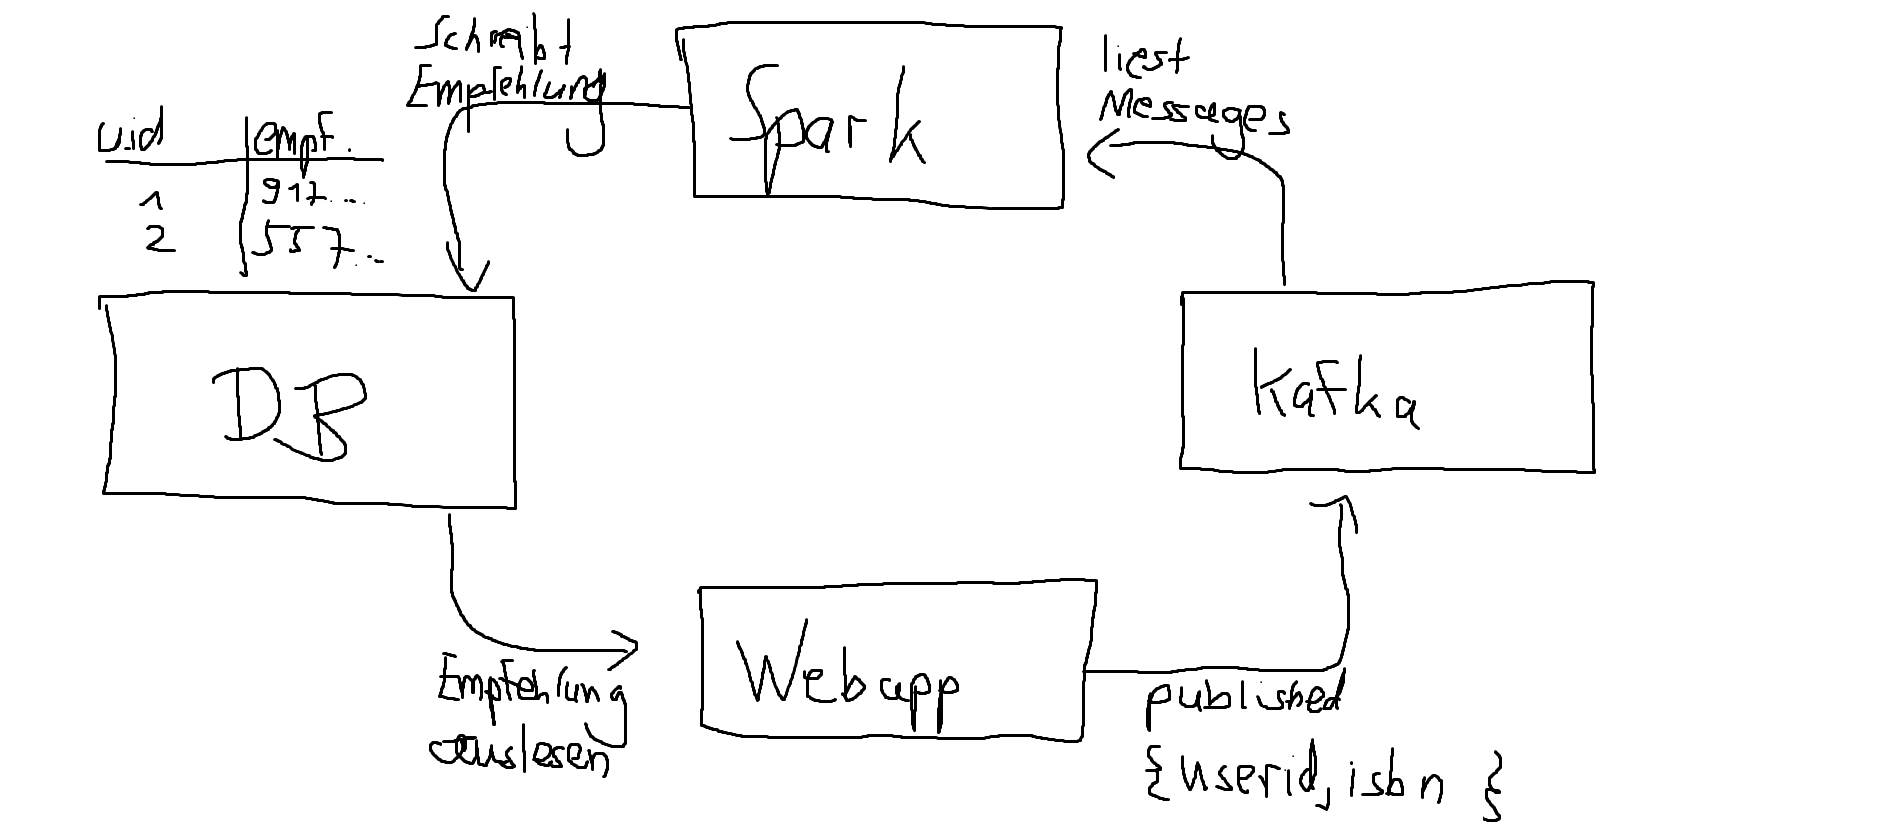 Schreibt
Empfehlung
Spark
liest
Messages
uid empf.
1 917...
2 557...
DB
Kafka
Empfehlung
auslesen
Webapp
published
{userid, isbn }